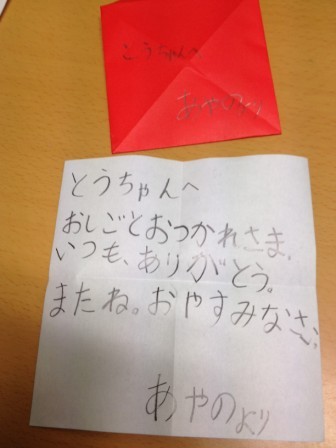 とうちゃんへ
あやのより
とうちゃんへ
おしごとおつかれさま.
いつも、ありがとう。
またね。おやすみなさい。
あやのより